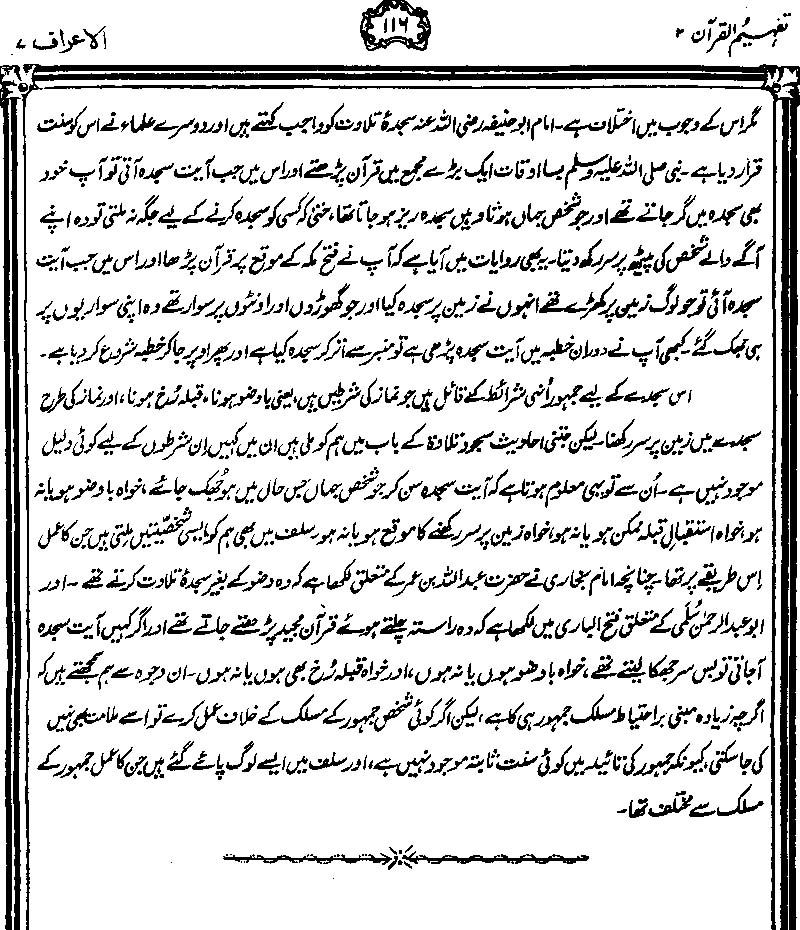 تفہیم القرآن ۲
۱۱۶
الاعراف ۷
مگر اس کے وجوب میں اختلاف ہے۔ امام ابو حنیفہ رضی اللہ عنہ سجدۂ تلاوت کو واجب کہتے ہیں اور دوسرے علماء نے اس کو سنت
قرار دیا ہے۔ نبی صلی اللہ علیہ وسلم بسا اوقات ایک بڑے مجمع میں قرآن پڑھتے اور اس میں جب آیت سجدہ آتی تو آپ خود
بھی سجدہ میں گر جاتے تھے اور جو شخص جہاں ہوتا وہیں سجدہ ریز ہو جاتا تھا، حتیٰ کہ کسی کو سجدہ کرنے کے لیے جگہ نہ ملتی تو وہ اپنے
آگے والے شخص کی پیٹھ پر سر رکھ دیتا۔ یہ بھی روایات میں آیا ہے کہ آپ نے فتح مکہ کے موقع پر قرآن پڑھا اور اس میں جب آیت
سجدہ آئی تو جو لوگ زمین پر کھڑے تھے انہوں نے زمین پر سجدہ کیا اور جو گھوڑوں اور اونٹوں پر سوار تھے وہ اپنی سواریوں پر
ہی جھک گئے۔ کبھی آپ نے دوران خطبہ میں آیت سجدہ پڑھی ہے تو منبر سے اتر کر سجدہ کیا ہے اور پھر اوپر جا کر خطبہ شروع کر دیا ہے۔
اس سجدے کے لیے جمہور اُنہی شرائط کے قائل ہیں جو نماز کی شرطیں ہیں، یعنی باوضو ہونا، قبلہ رُخ ہونا، اور نماز کی طرح
سجدے میں زمین پر سر رکھنا۔ لیکن جتنی احادیث سجود تلاوۃ کے باب میں ہم کو ملی ہیں ان میں کہیں اِن شرطوں کے لیے کوئی دلیل
موجود نہیں ہے۔ اُن سے تو یہی معلوم ہوتا ہے کہ آیت سجدہ سن کر جو شخص جہاں جس حال میں ہو جُھک جائے، خواہ باوضو ہو یا نہ
ہو، خواہ استقبال قبلہ ممکن ہو یا نہ ہو، خواہ زمین پر سر رکھنے کا موقع ہو یا نہ ہو۔ سلف میں بھی ہم کو ایسی شخصیتیں ملتی ہیں جن کا عمل
اِس طریقے پر تھا۔ چنانچہ امام بخاری نے حضرت عبداللہ بن عمر کے متعلق لکھا ہے کہ وہ وضو کے بغیر سجدۂ تلاوت کرتے تھے۔ اور
ابو عبدالرحمٰن سُلَمی کے متعلق فتح الباری میں لکھا ہے کہ وہ راستہ چلتے ہوئے قرآن مجید پڑھتے جاتے تھے اور اگر کہیں آیت سجدہ
آجاتی تو بس سر جھکا لیتے تھے، خواہ باوضو ہوں یا نہ ہوں، اور خواہ قبلہ رُخ بھی ہوں یا نہ ہوں۔ ان وجوہ سے ہم سمجھتے ہیں کہ
اگرچہ زیادہ مبنی بر احتیاط مسلک جمہور ہی کا ہے، لیکن اگر کوئی شخص جمہور کے مسلک کے خلاف عمل کرے تو اسے ملامت بھی نہیں
کی جا سکتی، کیونکہ جمہور کی تائید میں کوئی سنت ثابتہ موجود نہیں ہے، اور سلف میں ایسے لوگ پائے گئے ہیں جن کا عمل جمہور کے
مسلک سے مختلف تھا۔